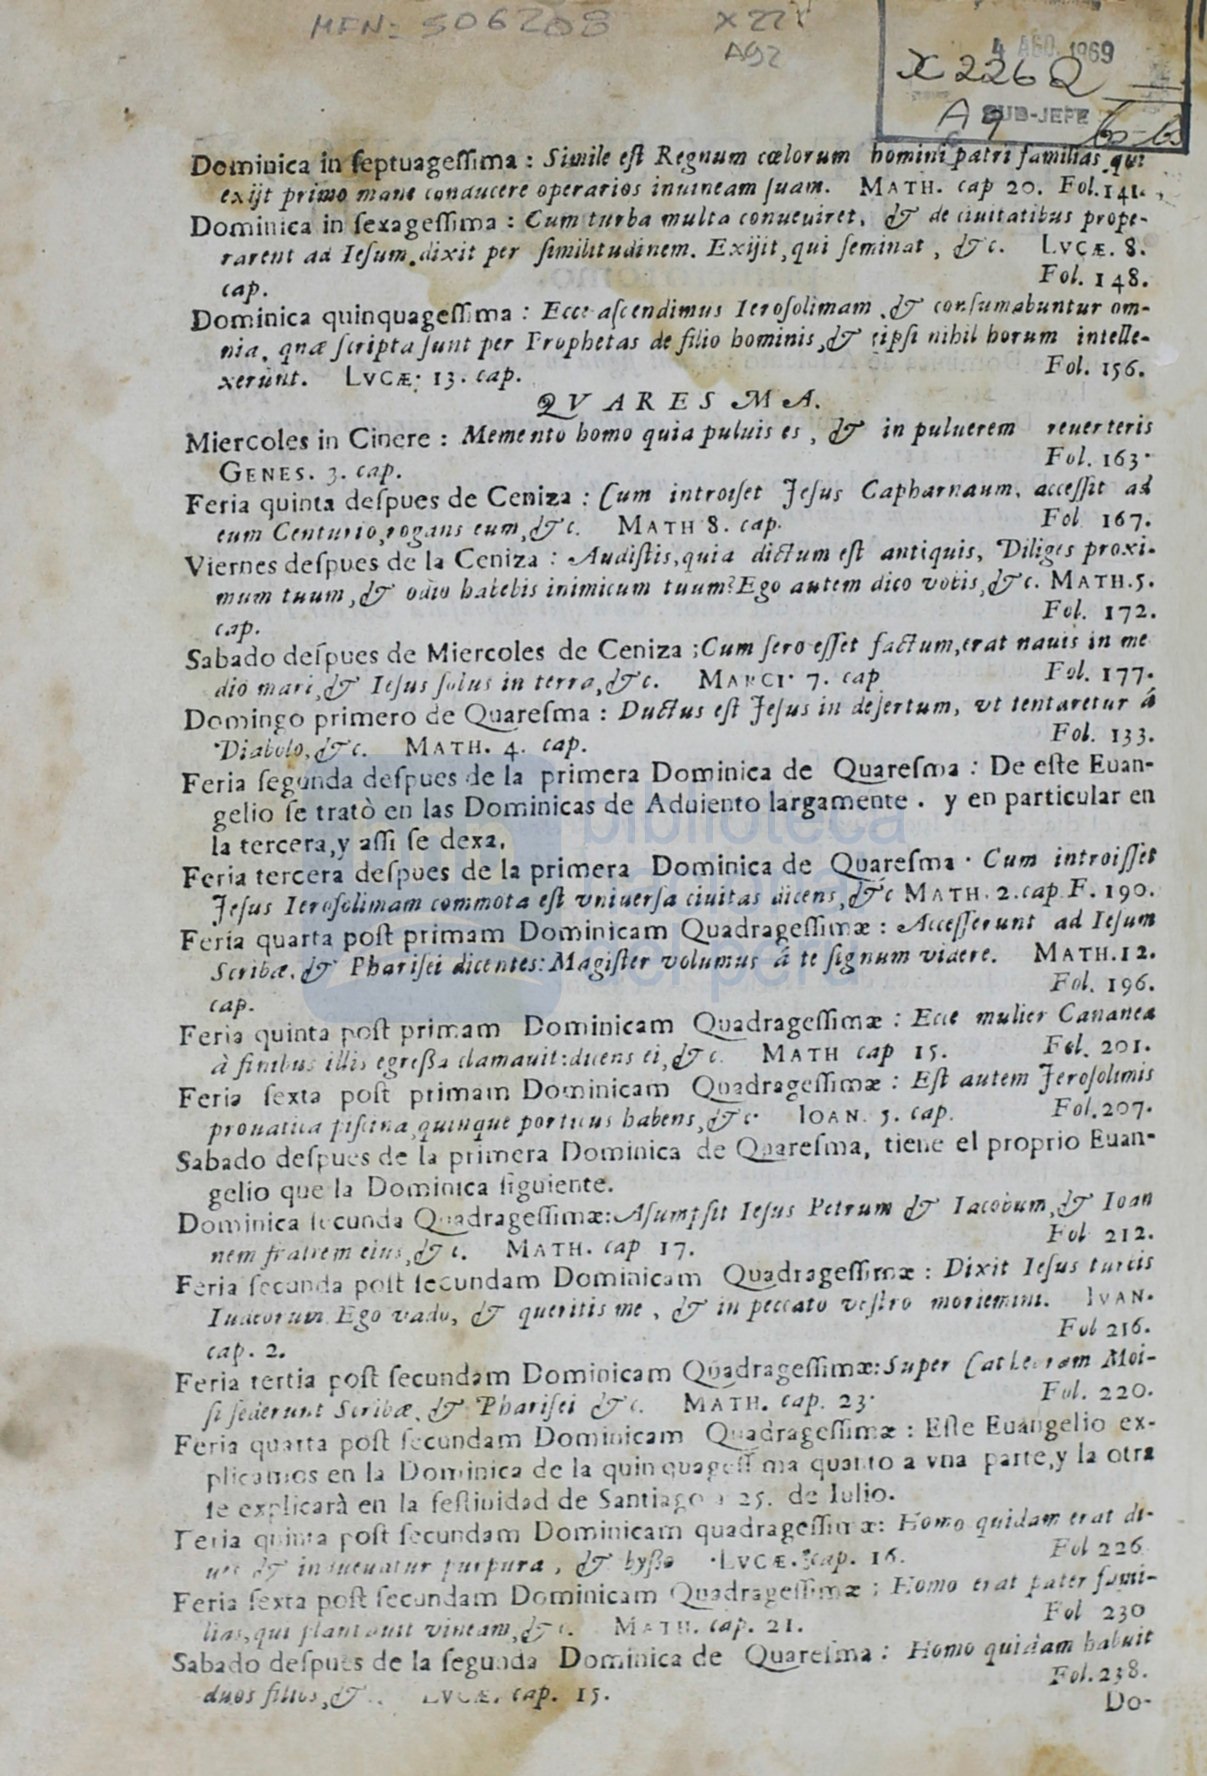 MFN: 506208 X 22
A92
4 AGO. 1969
X 226 Q
SUB-JEFE
A 9
Dominica in ſeptuageſſima : Simile eſt Regnum cœlorum homini patri familias qui
exijt primo mane conducere operarios inuineam ſuam. MATH. cap 20. Fol. 141.
Dominica in ſexageſſima : Cum turba multa conueuiret, & de ciuitatibus prope-
rarent ad Ieſum, dixit per ſimilitudinem. Exijit, qui ſeminat, &c. LVCÆ. 8.
cap. Fol. 148.
Dominica quinquageſſima : Ecce aſcendimus Ieroſolimam, & conſumabuntur om-
nia, quæ ſcripta ſunt per Prophetas de filio hominis, & ipſi nihil horum intelle-
xerunt. LVCÆ. 13. cap. Fol. 156.
QVARESMA.
Miercoles in Cinere : Memento homo quia puluis es, & in puluerem reuerteris
GENES. 3. cap. Fol. 163.
Feria quinta deſpues de Ceniza : Cum introiſet Jeſus Capharnaum, acceſſit ad
eum Centurio, rogans eum, &c. MATH 8. cap. Fol. 167.
Viernes deſpues de la Ceniza : Audiſtis, quia dictum eſt antiquis, Diliges proxi-
mum tuum, & odio habebis inimicum tuum? Ego autem dico vobis, &c. MATH. 5.
cap. Fol. 172.
Sabado deſpues de Miercoles de Ceniza ; Cum ſero eſſet factum, erat nauis in me
dio mari, & Ieſus ſolus in terra, &c. MARCI. 7. cap Fol. 177.
Domingo primero de Quareſma : Ductus eſt Jeſus in deſertum, vt tentaretur á
Diabolo, &c. MATH. 4. cap. Fol. 133.
Feria ſegunda deſpues de la primera Dominica de Quareſma : De eſte Euan-
gelio ſe tratò en las Dominicas de Aduiento largamente. y en particular en
la tercera, y aſſi ſe dexa.
Feria tercera deſpues de la primera Dominica de Quareſma. Cum introiſſet
Jeſus Ieroſolimam commota eſt vniuerſa ciuitas dicens, &c MATH. 2. cap. F. 190.
Feria quarta poſt primam Dominicam Quadrageſſimæ : Acceſſerunt ad Ieſum
Scribæ, & Phariſei dicentes: Magiſter volumus á te ſignum videre. MATH. 12.
cap. Fol. 196.
Feria quinta poſt primam Dominicam Quadrageſſimæ : Ecce mulier Cananea
à finibus illis egreßa clamauit: dicens ei, &c. MATH cap 15. Fol. 201.
Feria ſexta poſt primam Dominicam Quadrageſſimæ : Eſt autem Jeroſolimis
prouatica piſcina, quinque porticus habens, &c. IOAN. 5. cap. Fol. 207.
Sabado deſpues de la primera Dominica de Quareſma, tiene el proprio Euan-
gelio que la Dominica ſiguiente.
Dominica ſecunda Quadrageſſimæ: Aſumpſit Ieſus Petrum & Iacobum, & Ioan
nem fratrem eius, &c. MATH. cap 17. Fol 212.
Feria ſecunda poſt ſecundam Dominicam Quadrageſſimæ : Dixit Ieſus turbis
Iudeorum Ego vado, & queritis me, & in peccato veſtro moriemini. IVAN.
cap. 2. Fol 216.
Feria tertia poſt ſecundam Dominicam Quadrageſſimæ: Super Cathedram Moi-
ſi ſederunt Scribæ, & Phariſei &c. MATH. cap. 23. Fol. 220.
Feria quarta poſt ſecundam Dominicam Quadrageſſimæ : Eſte Euangelio ex-
plicamos en la Dominica de la quinquageſſima quanto a vna parte, y la otra
ſe explicarà en la feſtiuidad de Santiago a 25. de Iulio.
Feria quinta poſt ſecundam Dominicam quadrageſſimæ: Homo quidam erat di-
ues & indueuatur purpura, & byßo. LVCÆ. cap. 16. Fol 226
Feria ſexta poſt ſecundam Dominicam Quadrageſſimæ : Homo erat pater fami-
lias, qui plantauit vineam, &c. MATH. cap. 21. Fol 230
Sabado deſpues de la ſegunda Dominica de Quareſma : Homo quidam habuit
duos filios, & LVCÆ. cap. 15. Fol. 238.
Do-
biblioteca
nacional
del perú